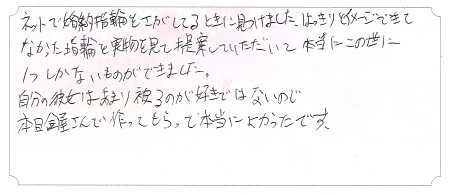 ネットで婚約指輪をさがしてるときに見つけました。はっきりとイメージできて
なかった指輪を実物を見て提案していただいて本当にこの世に
1つしかないものができました。
自分の彼女はあまり被るのが好きではないので
本日金屋さんで作ってもらって本当によかったです。